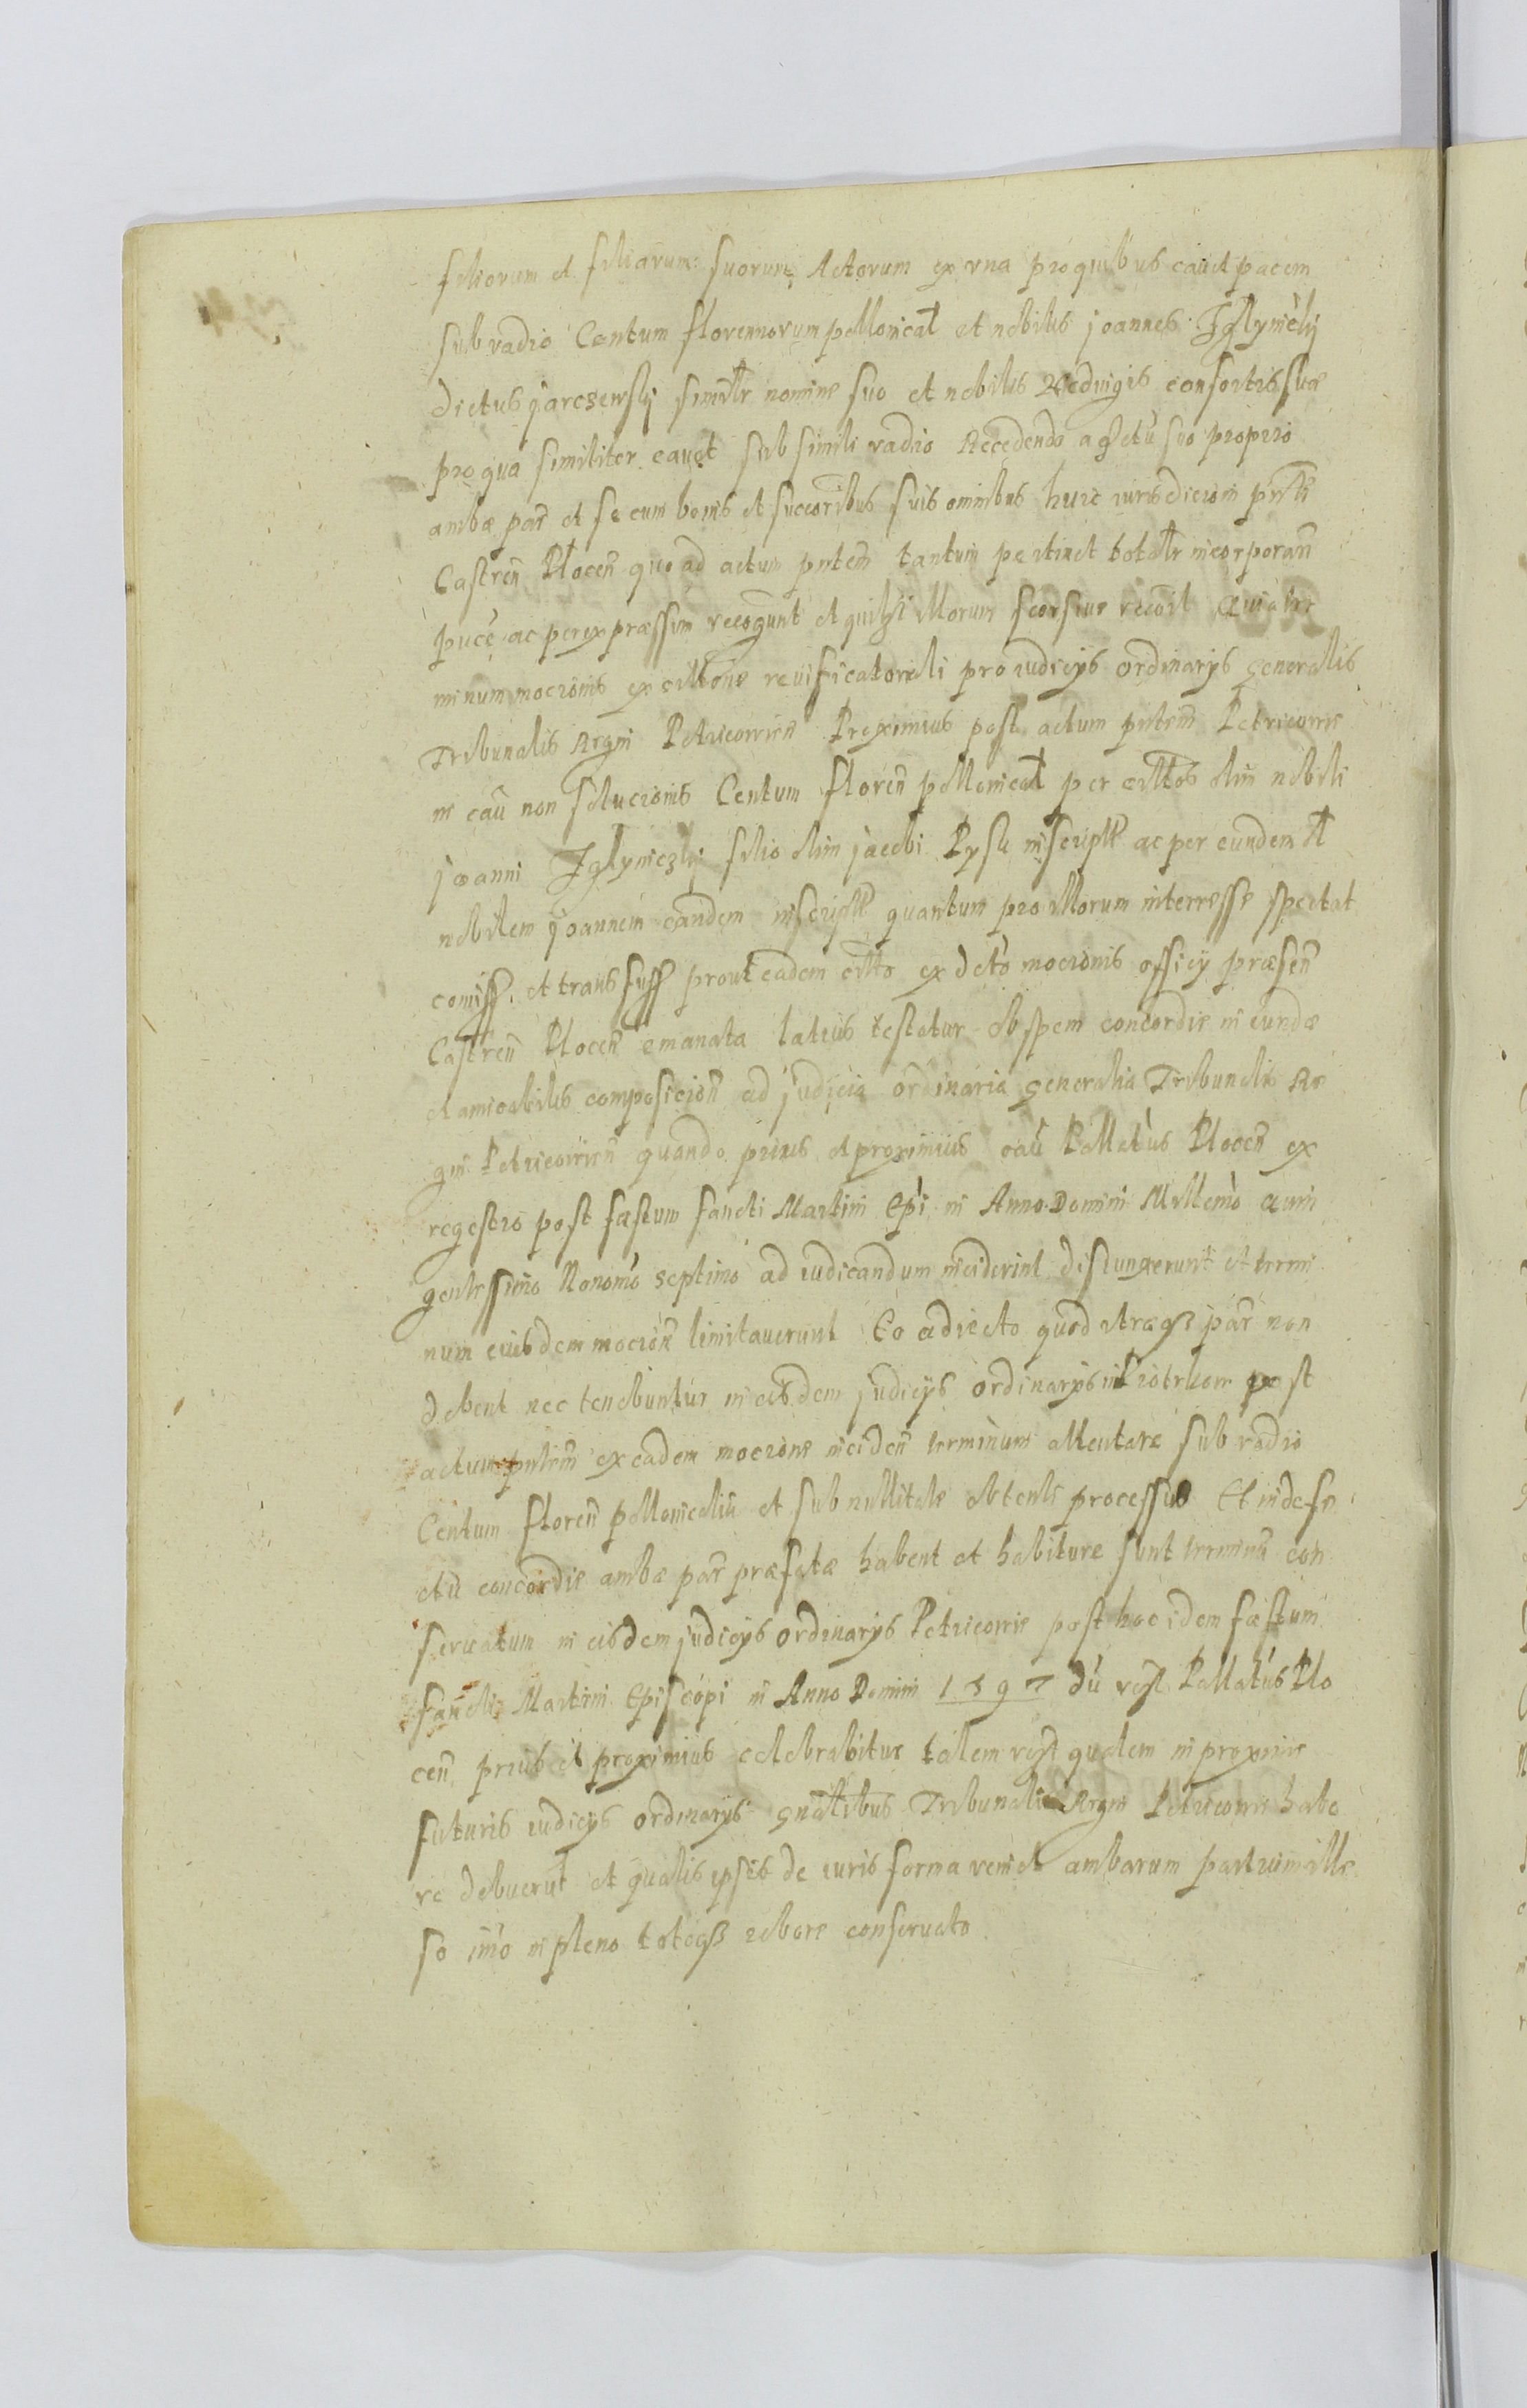 filiorum et filiarum suorum Actorum ex vna pro quibus cauet pacem
sub vadio Centum florennorum pollonical et nobilis joannes
dictus jarczewskj similr nomine suo et nobilis Hedvigis consortis suæ
pro qua similiter cauet sub simili vadio Recedendo a suo proprio
ambæ par et se cum bonis et succoribus suis omnibus huic iurisdicioni pnti
Castren Plocen quo ad actum pntem tantum pertinet totalr incorporan
puce ac per expræssum recognunt et quilzt illorum seorsiue recoit Quia ter
minum mocionis ex cittone reuificatorali pro iudicijs ordinarijs generalis
Tribunalis Regni Petricovien Proximius post actum pntem Petricovie
in cau non solucionis Centum floren pollonical per cittos olim nobili
joanni filio olim jacobi inscript ac per eundem
nobilem joannem eandem inscript quantum pro illorum interresse spectat
comiss. et transfuss prout eadem citto ex dcto mocionis officij præsen
Castren Plocen emanata latius testatur ob spem concordie in eundæ
et amicabilis composicion ad judicia ordinaria generalia Tribunalis Re
gni Petricovien quando prius et proximius cau Pallatus Plocen ex
regestro post fæstum sancti Martini Epi in Anno Domini Millemo quin
gentessimo Nonomo septimo ad iudicandum inciderint distunxerunt et termi
num eiusdem mocion limitauerunt Eo adiecto quod vtraqz par non
debent nec tenebuntur in eisdem judicijs ordinarijs in Piotrkow post
actum pntem ex eadem mocione inciden terminum attentare sub vadio
Centum floren pollonicaliu et sub nullitate obtenti processus Et in defe
ctu concordie ambæ par præfatæ habent et habiture sunt terminu con
seruatum in eisdem judicijs ordinarijs Petricovie post hoc idem fæstum
sancti Martini Episcopi in Anno Domini 1597 du Pallatus Plo
cen prius et proximius celebrabitur talem qualem in proxime
futuris iudicijs ordinarijs gnalibus Tribunalis Regni Petricovie habe
re debuerut et qualis ipsis de iuris forma veniet ambarum partium
so imo in pleno totoqz robore conseruato